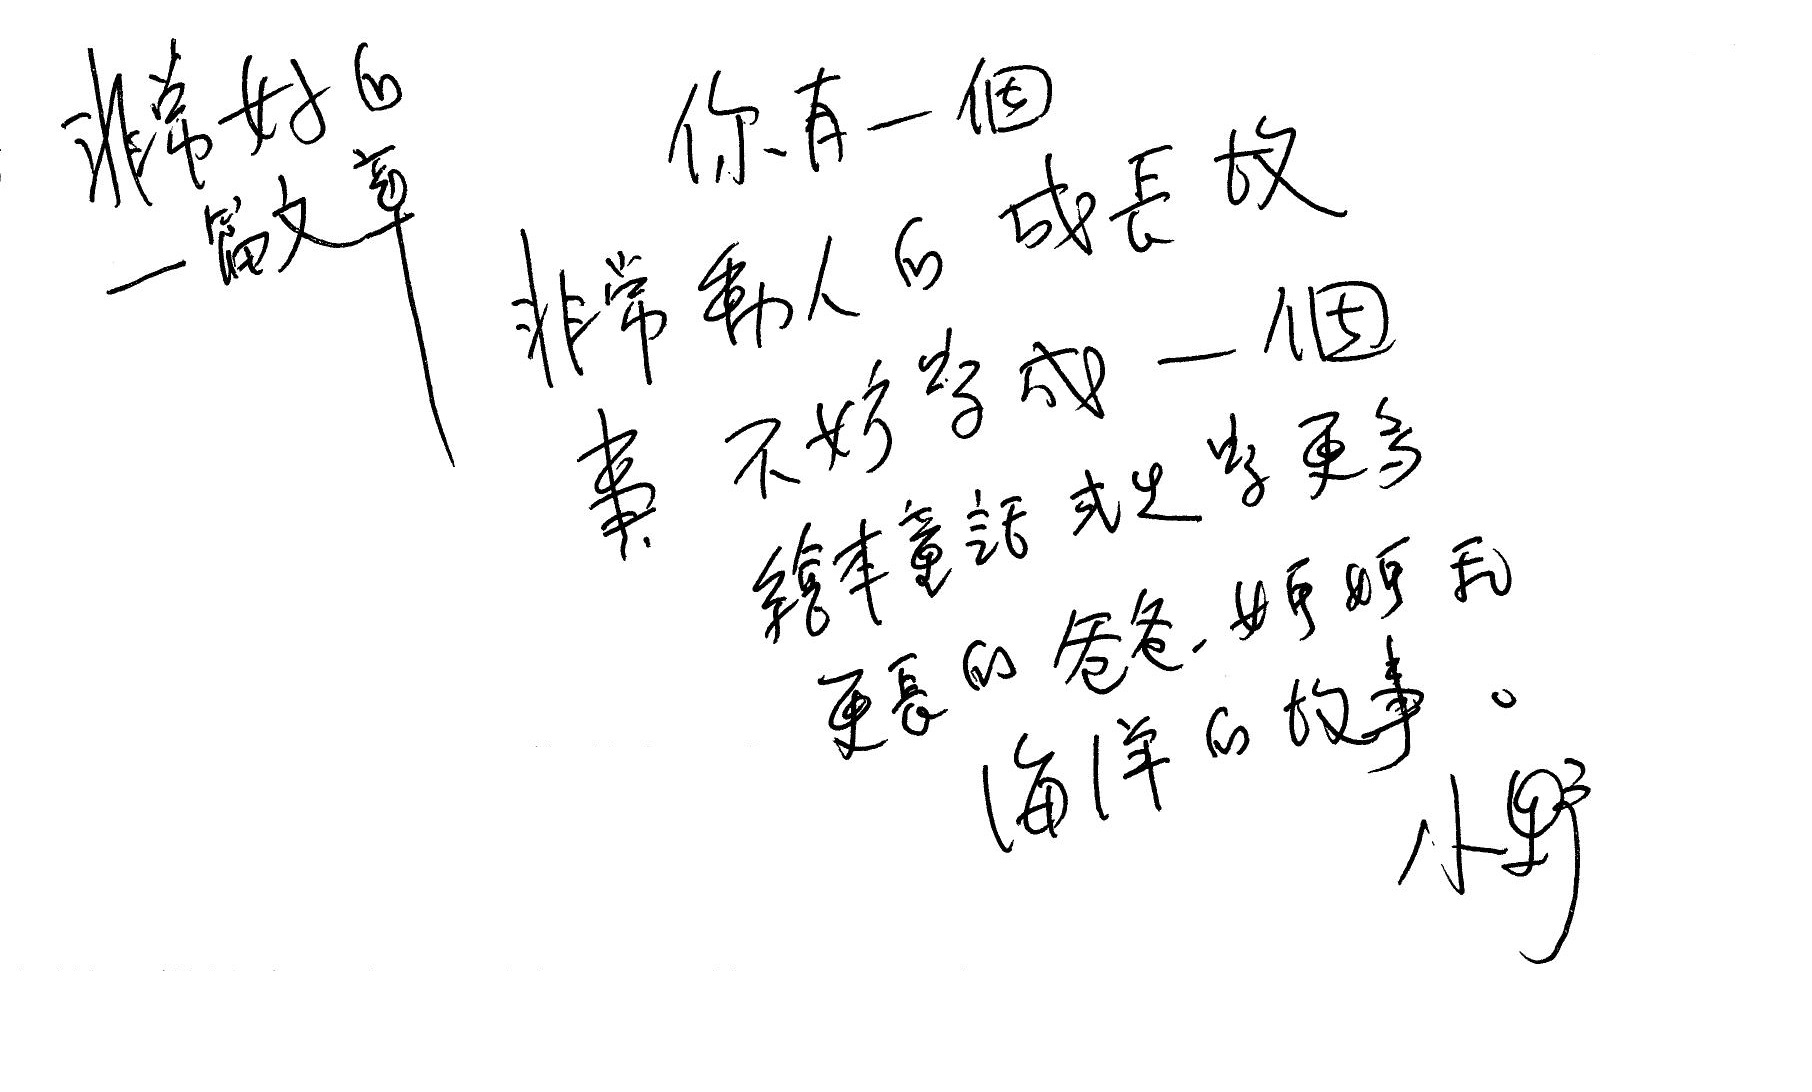 非常好的
一篇文章
你有一個
非常動人的成長故
事 不妨寫成一個
繪本童話或是寫更多
更長的爸爸、媽媽和
海洋的故事。
小野